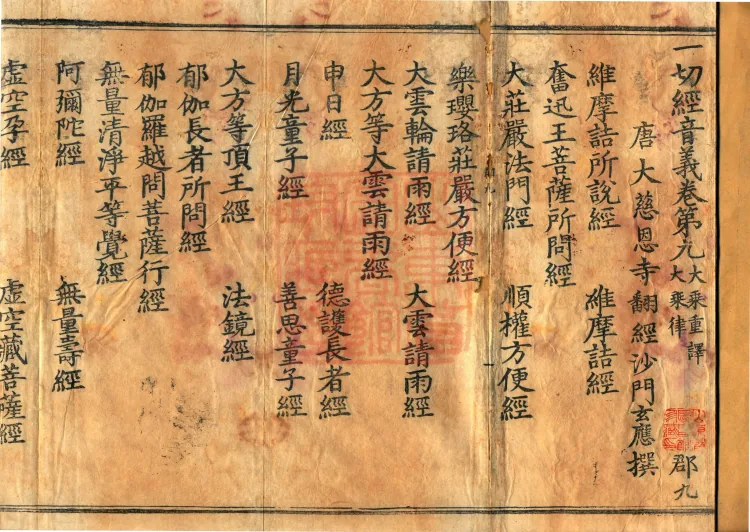 一切經音義卷第九 大乘重譯 大乘律 郡九
唐大慈恩寺翻經沙門玄應撰
維摩詰所說經 維摩詰經
奮迅王菩薩所問經
大莊嚴法門經 順權方便經
樂瓔珞莊嚴方便經
大雲輪請雨經 大雲請雨經
大方等大雲請雨經
申日經 德護長者經
月光童子經 善思童子經
大方等頂王經 法鏡經
郁伽長者所問經
郁伽羅越問菩薩行經
無量清淨平等覺經
阿彌陀經 無量壽經
虛空孕經 虛空藏菩薩經